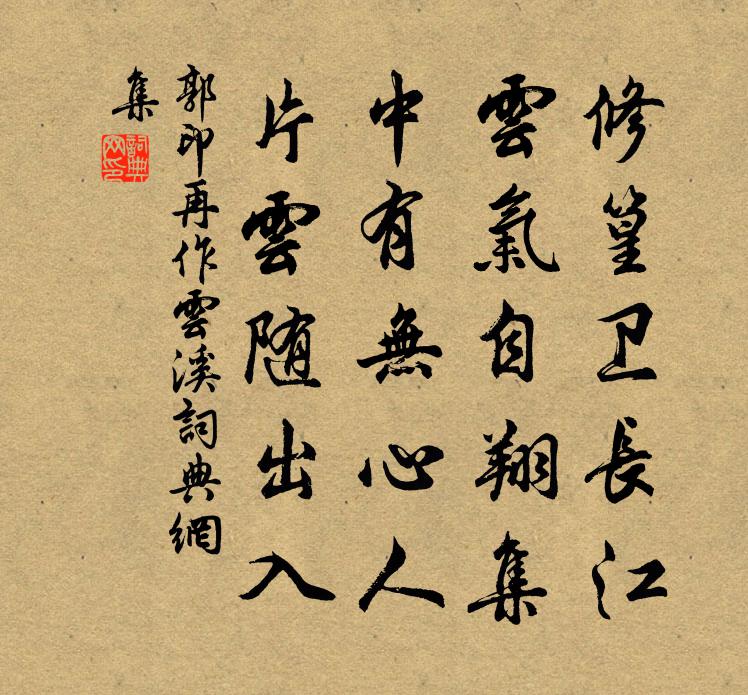 修篁卫長江
雲氣自翔集
中有無心人
片雲随出入
郭印再作雲溪詞典網
集
詞典網印